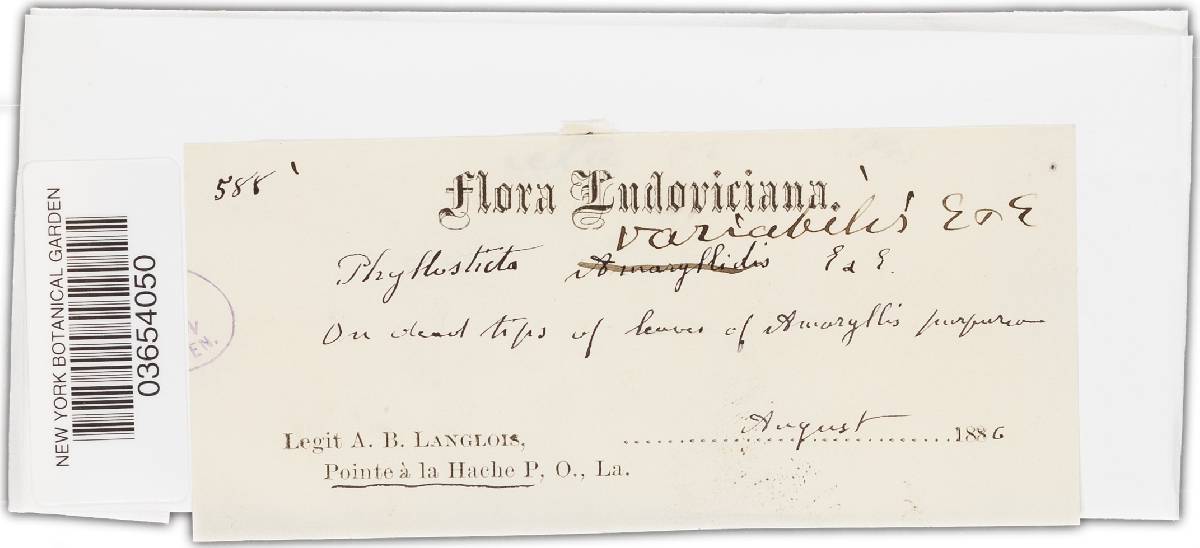 588
Flora Ludoviciana.
variabilis E & E
Phyllosticta Amaryllidis E & E.
On dead tips of leaves of Amaryllis purpurea
August 1886
Legit A. B. Langlois,
Pointe à la Hache P, O., La.
NEW YORK BOTANICAL GARDEN
03654050
EN.